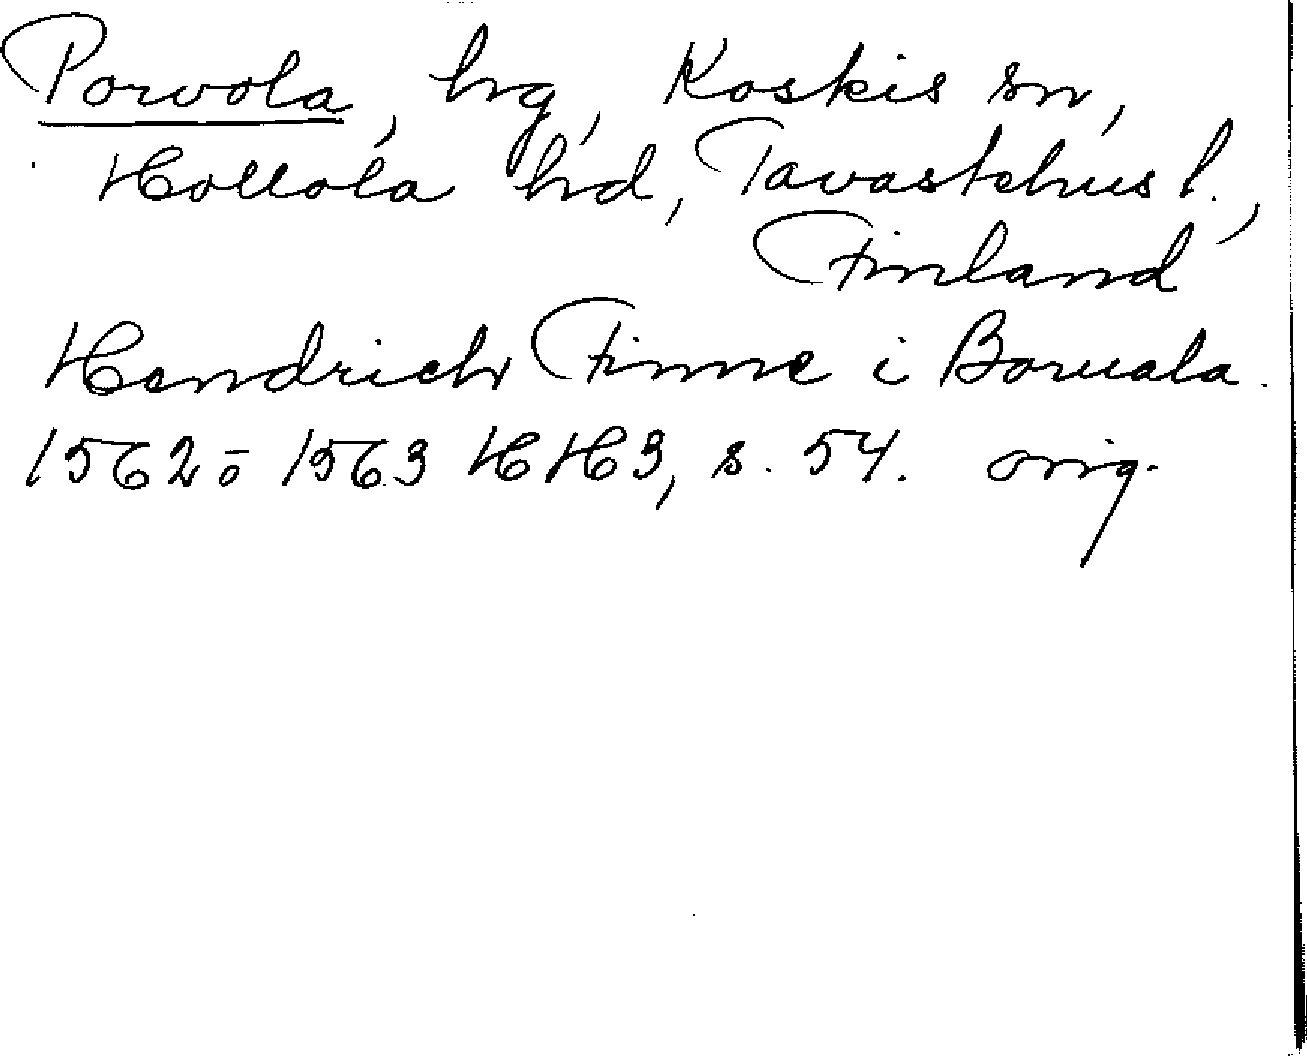 Porvola, hrg, Koskis sn,
Hollola hd, Tavastehus l.,
Finland
Hendrich Finne i Boruala.
1562 ō 1563 HH3, s. 54. orig.